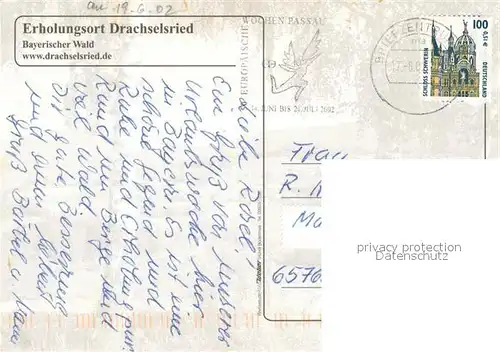 an 19.6.02
Erholungsort Drachselsried
Bayerischer Wald
www.drachselsried.de
EUROPÄISCHE
WOCHEN PASSAU
JUNI BIS 28. JULI 2002
BRIEFZENTRUM
100
0,51 €
SCHLOSS SCHWERIN
DEUTSCHLAND
Liebe Rosel!
Ein Gruß von unserer
Urlaubswoche hier
in Bayern. Es ist eine
schöne Gegend und
Ruhe und Erholung pur.
Rund um Berge und
viel Wald.
Dir gute Besserung
und von
Gruß Bärbel u.
Frau
R.
6576
privacy protection
Datenschutz